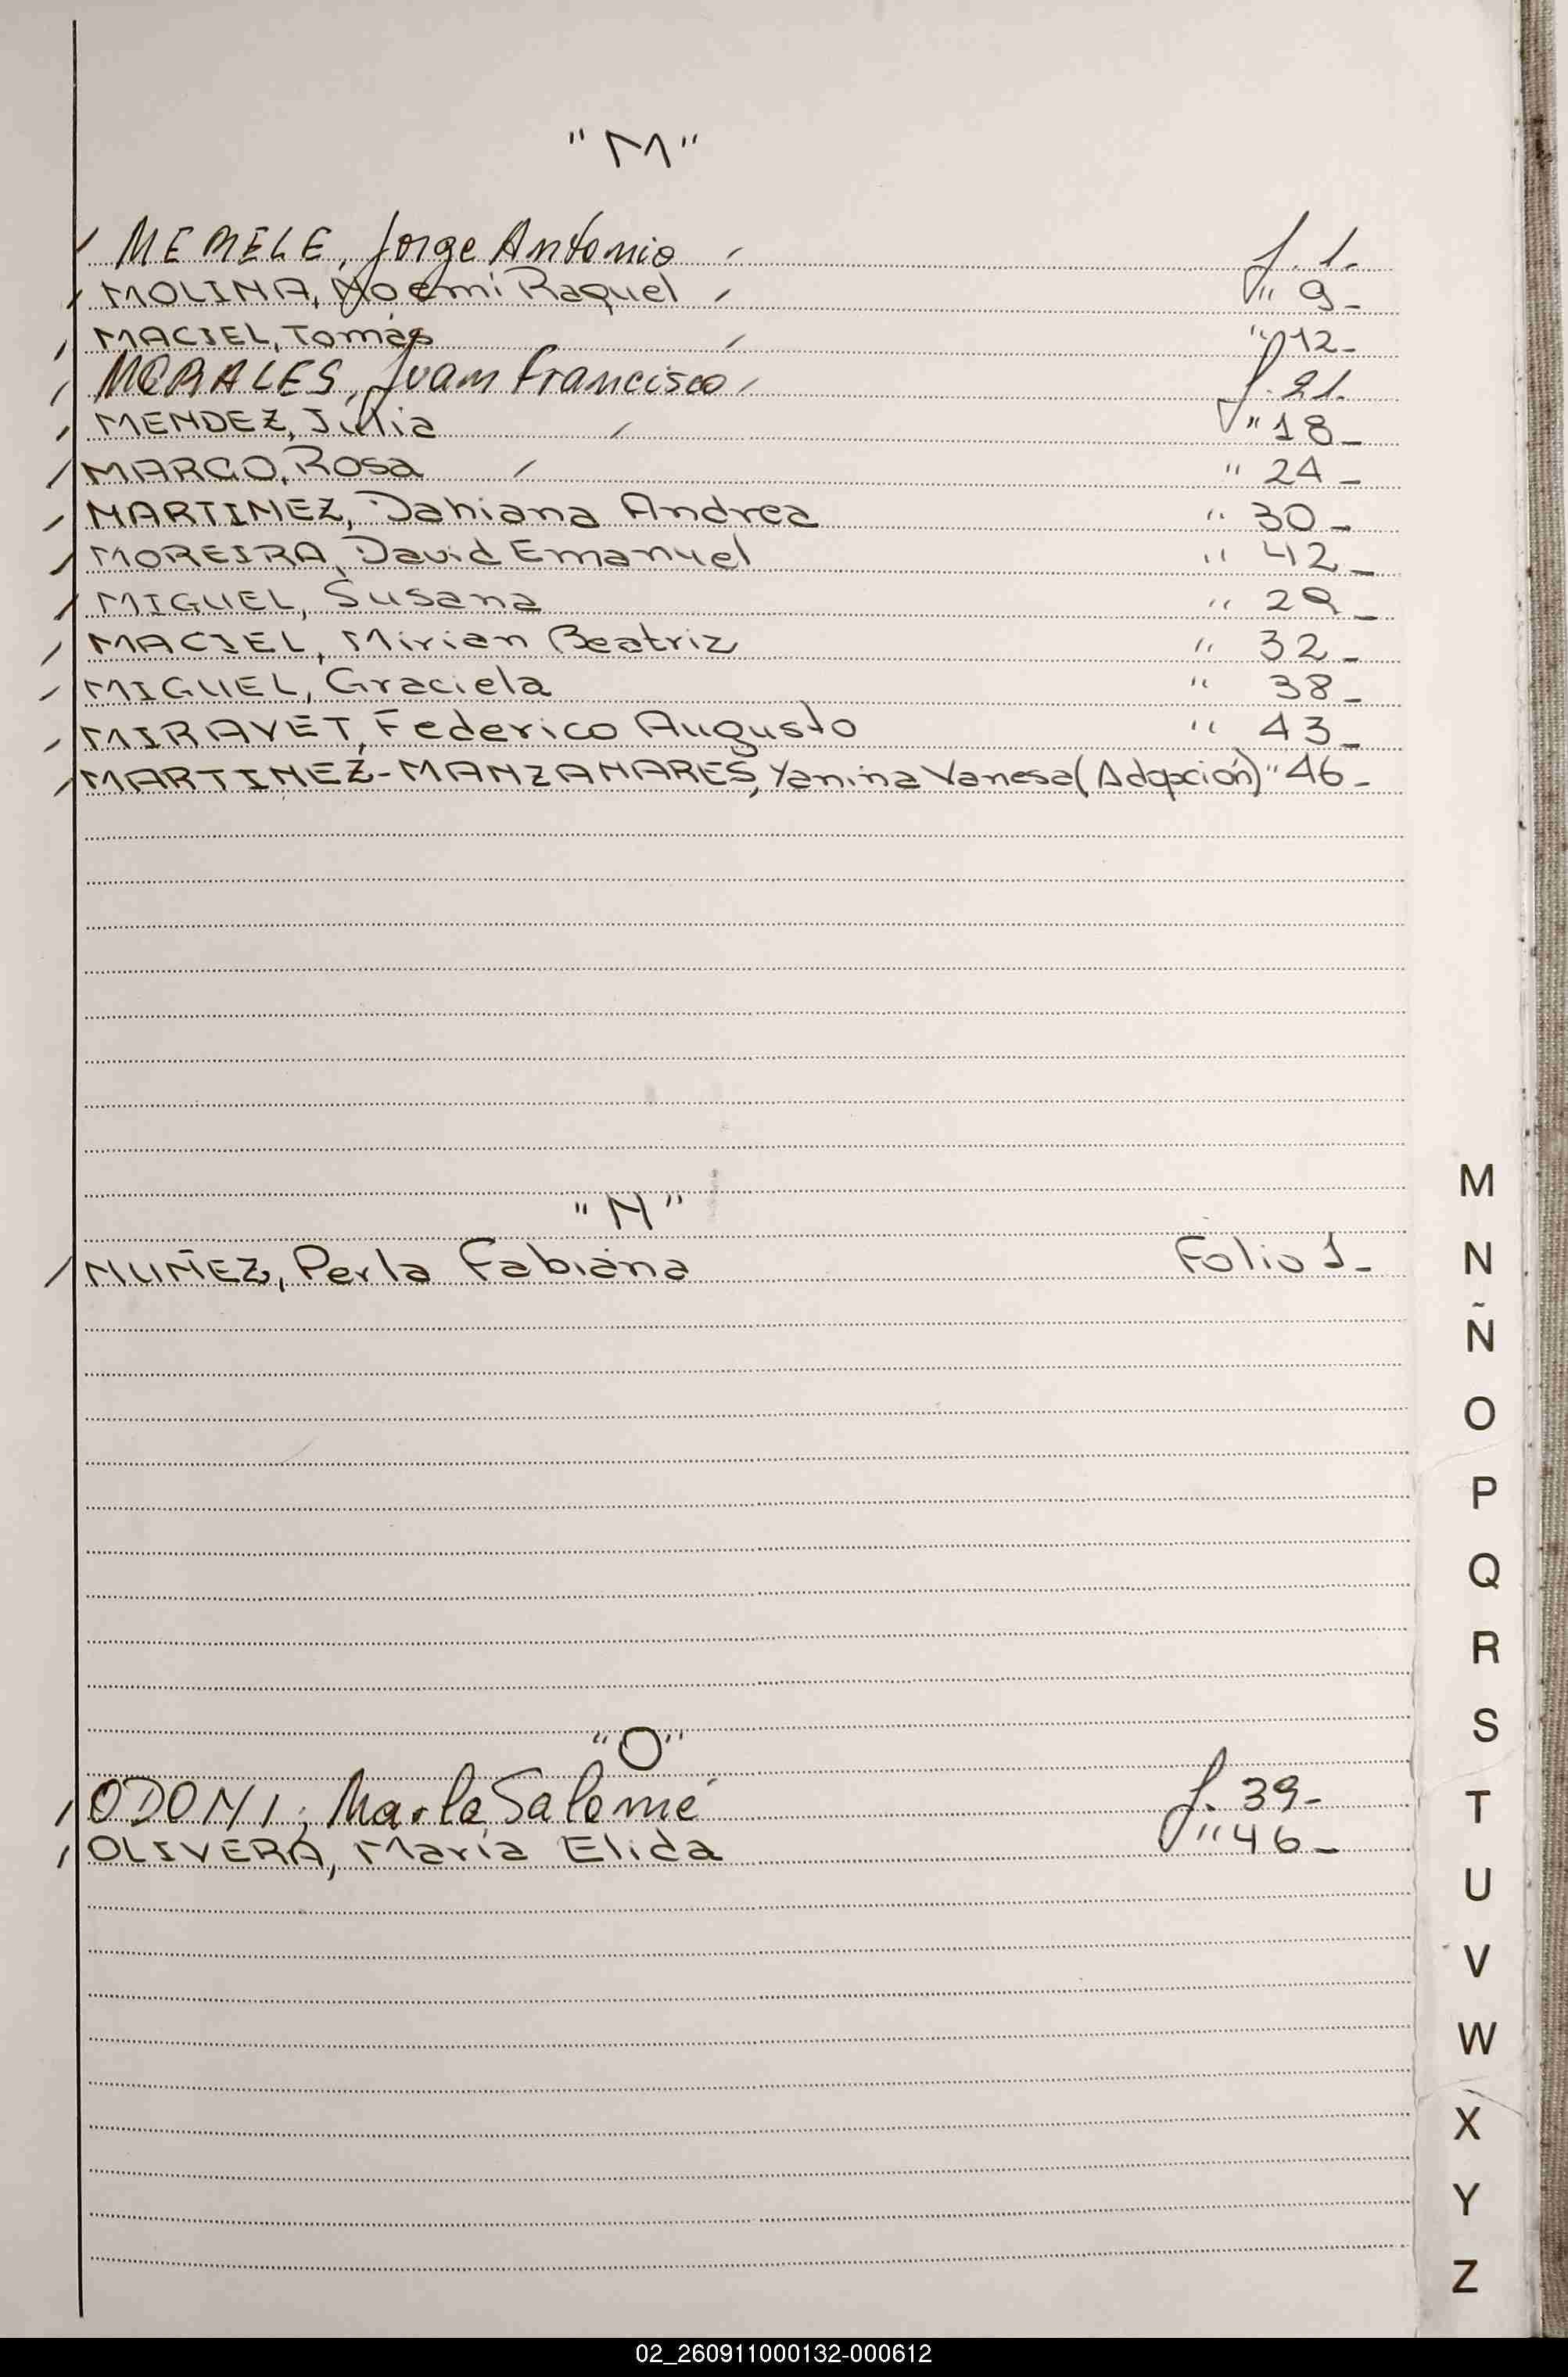 "M"
MEBELE, Jorge Antonio f. 1.
MOLINA, Noemi Raquel " 9-
MACIEL, Tomás " 12-
MORALES, Juan Francisco f. 21.
MENDEZ, Julia " 18-
MARGO, Rosa " 24-
MARTINEZ, Dahiana Andrea " 30-
MOREIRA, David Emanuel " 42-
MIGUEL, Susana " 29-
MACIEL, Mirian Beatriz " 32-
MIGUEL, Graciela " 38-
MIRAVET, Federico Augusto " 43-
MARTINEZ-MANZANARES, Yanina Vanesa (Adopción) " 46-
"N"
NUÑEZ, Perla Fabiana Folio 1-
"O"
ODONI, Marla Salomé f. 39-
OLIVERA, María Elida " 46-
M
N
Ñ
O
P
Q
R
S
T
U
V
W
X
Y
Z
02_260911000132-000612